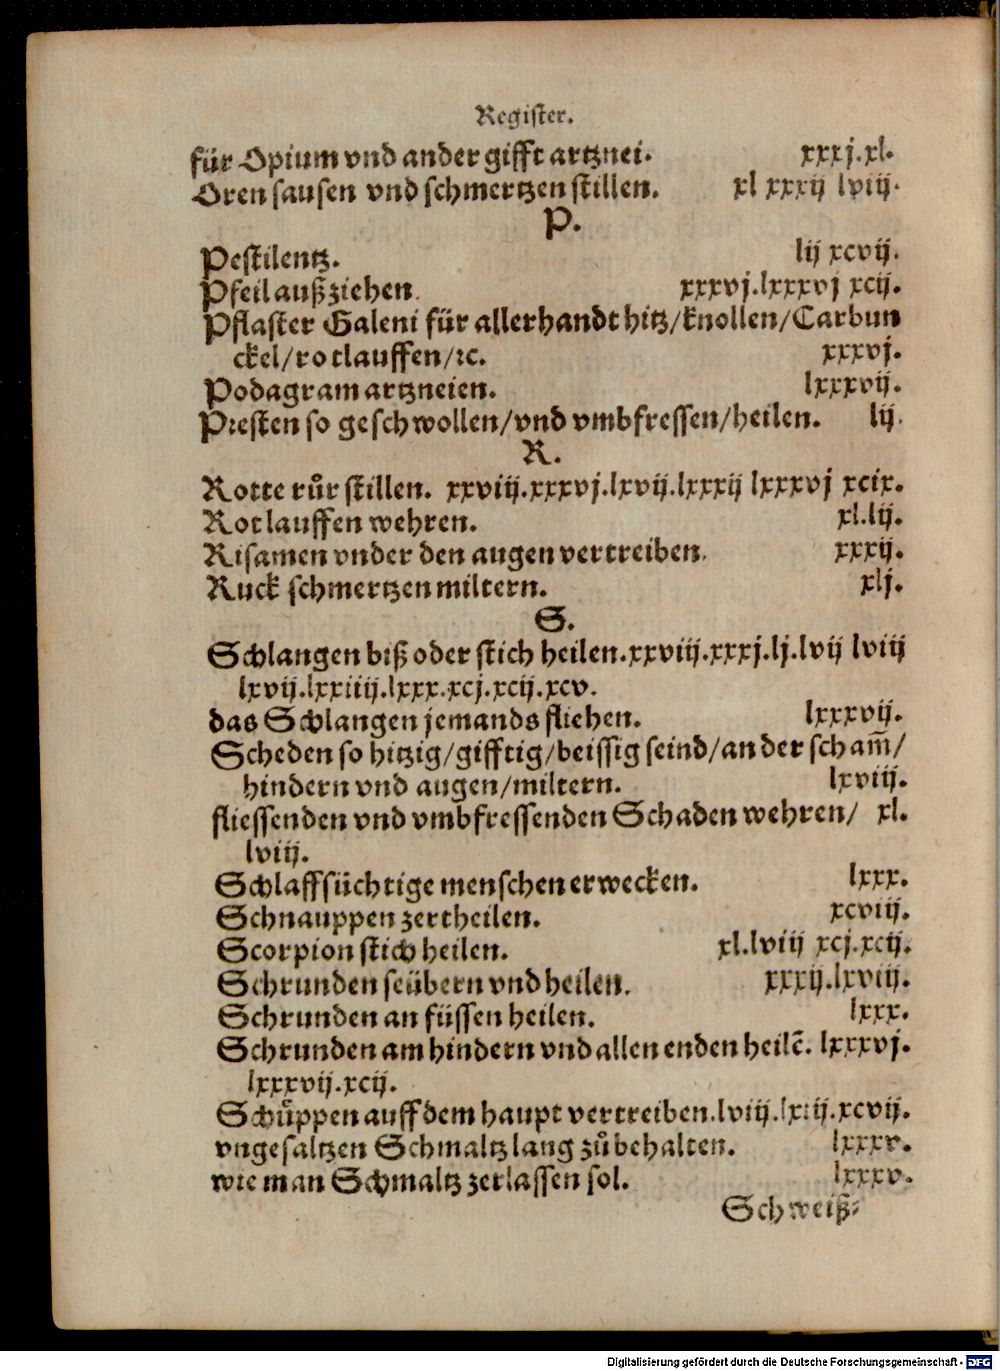 Register.
für Opium vnd ander gifft artznei. xxxj.xl.
Oren sausen vnd schmertzen stillen. xl xxxij lviij.
P.
Pestilentz. lij xcvij.
Pfeil außziehen. xxxvj.lxxxvj xcij.
Pflaster Galeni für allerhandt hitz/knollen/Carbun
ckel/rotlauffen/ꝛc. xxxvj.
Podagram artzneien. lxxxvij.
Presten so geschwollen/vnd vmbfressen/heilen. lij.
R.
Rotte růr stillen. xxviij.xxxvj.lxvij.lxxxij lxxxvj xcix.
Rotlauffen wehren. xl.lij.
Risamen vnder den augen vertreiben. xxxij.
Ruck schmertzen miltern. xlj.
S.
Schlangen biß oder stich heilen.xxviij.xxxj.lj.lvij lviij
lxvij.lxxiiij.lxxx.xcj.xcij.xcv.
das Schlangen jemands fliehen. lxxxvij.
Scheden so hitzig/gifftig/beissig seind/an der scham̃/
hindern vnd augen/miltern. lxviij.
fliessenden vnd vmbfressenden Schaden wehren/ xl.
lviij.
Schlaffsüchtige menschen erwecken. lxxx.
Schnauppen zertheilen. xcviij.
Scorpion stich heilen. xl.lviij xcj.xcij.
Schrunden seübern vnd heilen. xxxij.lxviij.
Schrunden an füssen heilen. lxxx.
Schrunden am hindern vnd allen enden heilẽ. lxxxvj.
lxxxvij.xcij.
Schůppen auff dem haupt vertreiben.lviij. xcvij.
vngesaltzen Schmaltz lang zůbehalten. lxxxv.
wie man Schmaltz zerlassen sol. lxxxv.
Schweiß⸗
Digitalisierung gefördert durch die Deutsche Forschungsgemeinschaft - DFG